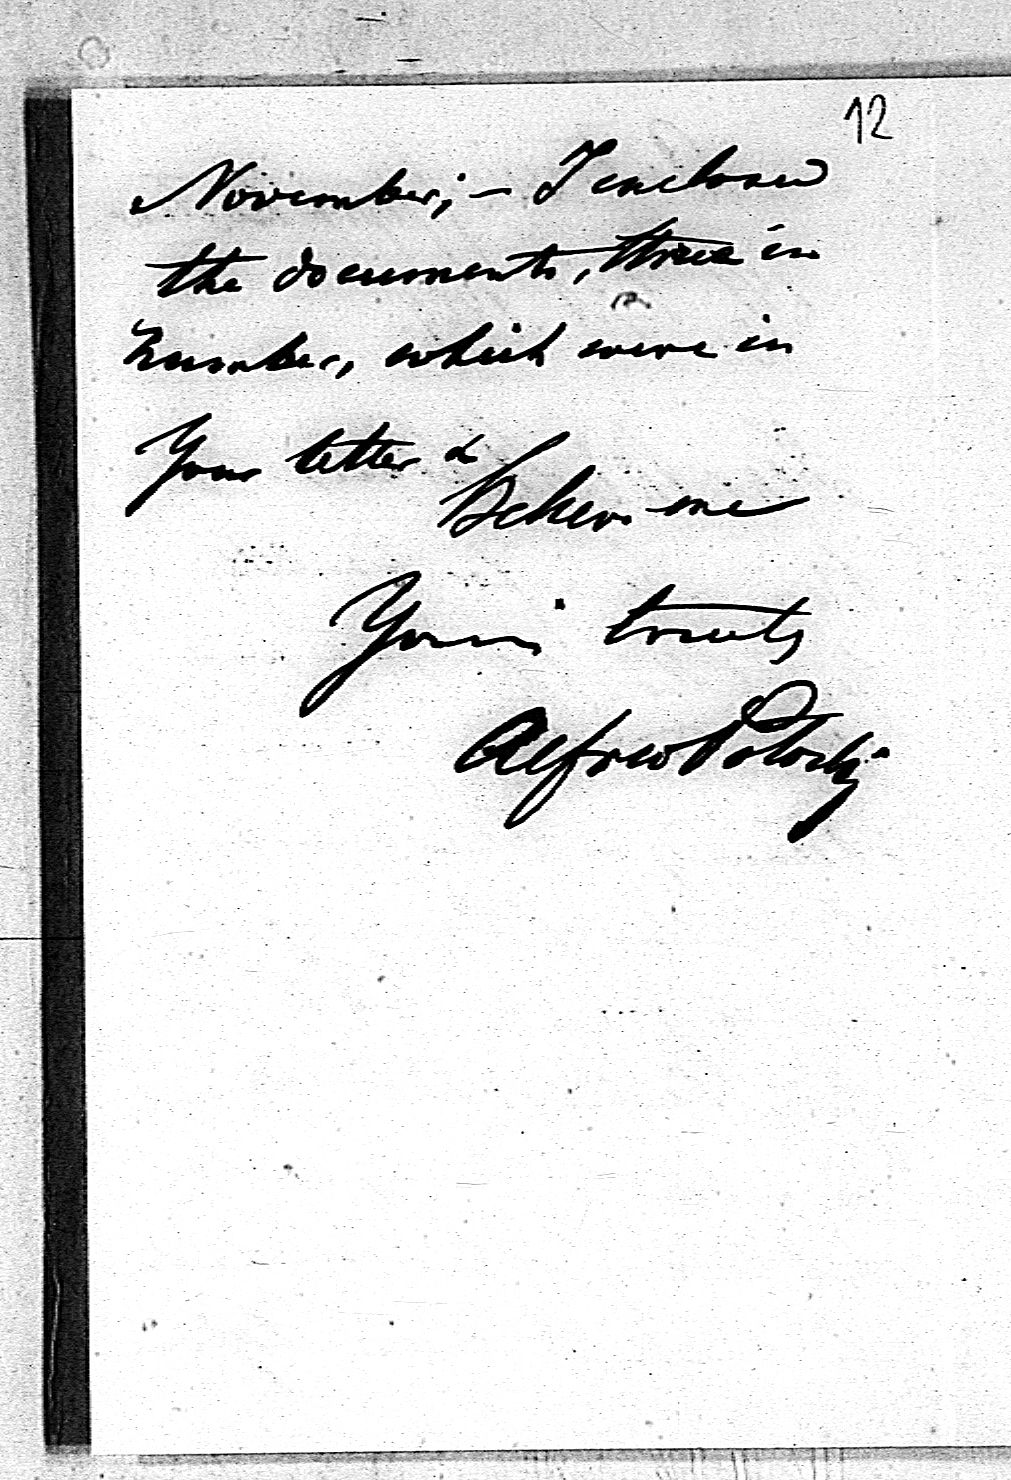 12
November; – I enclosed
the documents, three in
Number, which were in
Your letter &
Believe me
Yours truly
Alfred Potocki